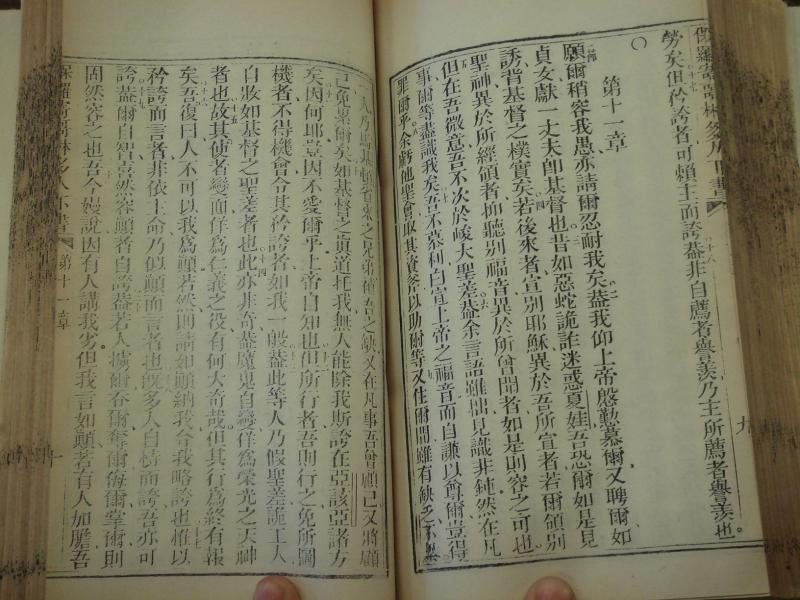 勞矣但矜誇者可賴主而誇蓋非自薦者譽羨乃主所薦者譽羨也
第十一章
願爾稍容我愚亦請爾忍耐我矣蓋我仰上帝慇勤慕爾又聘爾如
貞女獻一丈夫卽基督也昔如惡蛇詭詐迷惑夏娃吾恐爾如是見
誘背基督之樸實矣若後來者宣別耶穌異於吾所宣者若爾領別
聖神異於所經領者抑聽別福音異於所曾聞者如是則容之可也
但在吾微意吾不次於峻大聖差蓋余言語雖拙見識非鈍然在凡
事爾等盡識我矣吾不慕利白宣上帝之福音而自謙以尊爾豈得
罪爾乎余虧他聖會取其資斧以助爾等又住爾間雖有缺乏不
之兄弟補吾之缺又在凡事吾曾顧己又將顧
己免累爾矣如基督之真道托我無人能除我斯誇在亞該亞諸方
矣因何耶豈因不愛爾乎上帝自知也但所行者吾則行之免所圖
機者不得機會令其矜誇者如我一般蓋此等人乃假聖差詭工人
自妝如基督之聖差者也此亦非奇蓋魔鬼自變佯爲榮光之天神
者也故其使者變面佯爲仁義之役有何大奇哉但其行爲終有報
矣吾復曰人不可以我爲顛若然則請如顛納我令我略誇也惟以
矜誇而言者非依上命乃似顛而言者也旣多人自情而誇吾亦可
誇蓋爾自智喜然容顛者自誇蓋若人擄爾吞爾奪爾侮爾掌爾則
固然容之也吾今嫚說因有人講我劣但我言如顛若有人加膽吾
第十一章